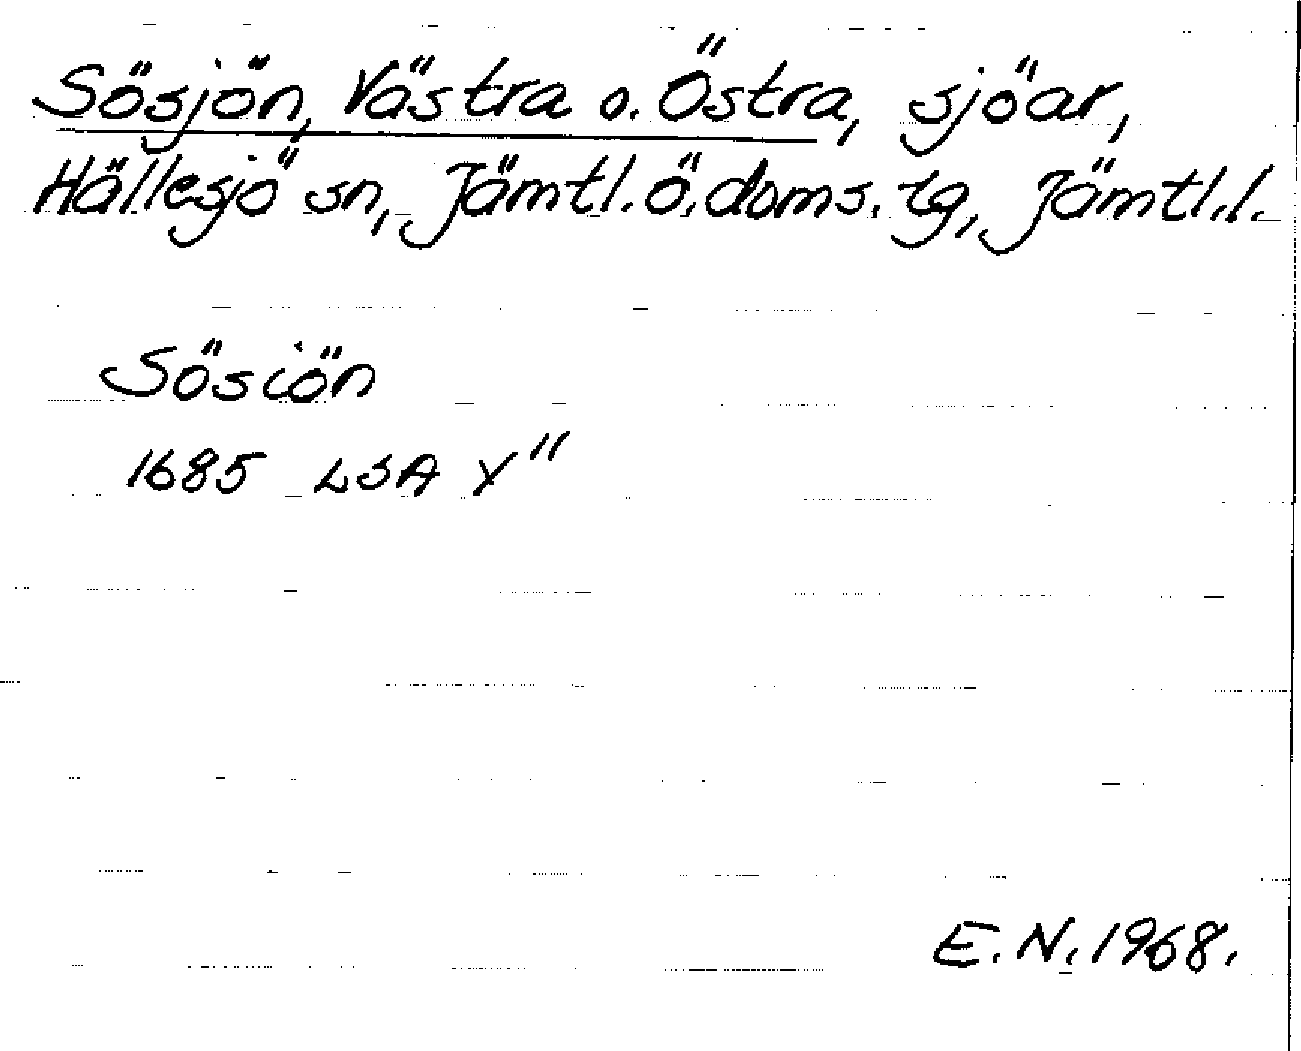 Sösjön, Västra o. Östra, sjöar,
Hällesjö sn, Jämtl. ö. doms. tg, Jämtl. l.
Sösiön
1685 LSA Y"
E. N. 1968.